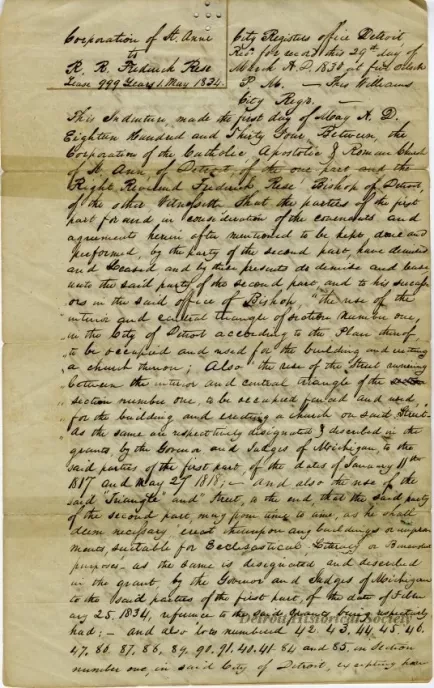 Corporation of St. Anne
to
R. R. Frederick Rese
Lease 999 Years 1. May 1834.
City Registers office Detroit
Recd for record this 29th day of
March A.D. 1836 at five oclock
P. M. — Thos Williams
City Regr. —
This Indenture made the first day of May A. D.
Eighteen Hundred and Thirty Four Between, the
Corporation of the Catholic, Apostolic & Roman Church
of St. Ann, of Detroit, of the one part and the
Right Reverend Frederick Rese, Bishop of Detroit,
of the other Witnesseth That the parties of the first
part for and in consideration of the covenants and
agreements herein after mentioned to be kept done and
performed, by the party of the second part, have demised
and Leased and by these presents do demise and lease
unto the said party of the second part, and to his success
ors in the said office of Bishop, "the use of the
interior and central triangle of section number one,
in the City of Detroit according to the Plan thereof
to be occupied and used for the building and erecting
a church thereon; Also the use of the Street running
between the interior and central triangle of the
section number one, to be occupied fenced and used
for the building and erecting a church on said Street.
As the same are respectively designated & described in the
grants, by the Governor and Judges of Michigan to the
said parties of the first part, of the dates of January 11th
1817 and May 27 1818; — and also the use of the
said "Triangle" and "Street, to the end that the said party
of the second part, may from time to time, as he shall
deem necessary erect thereupon any buildings or improve
ments, suitable for Ecclesastical, Literary or Benevolent
purposes as the same is designated and described
in the grant, by the Governor and Judges of Michigan
to the said parties of the first part, of the date of Febru
ary 25. 1834, reference to the said grants being respectively
had; — and also lots numbered 42. 43, 44, 45. 46.
47. 86. 87. 88. 89. 90. 91. 40. 41. 84 and 85. in section
number one, in said City of Detroit, excepting
Detroit Historical Society